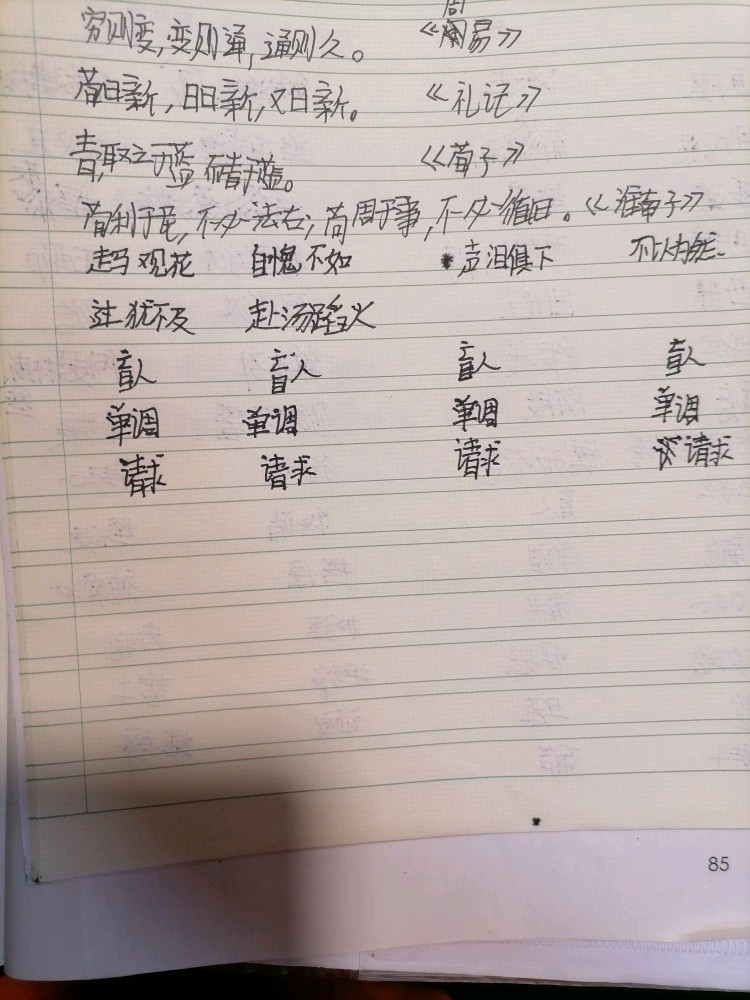 穷则变,变则通,通则久。 《周易》
苟日新,日日新,又日新。 《礼记》
青,取之于蓝而青于蓝。 《荀子》
苟利于民,不必法古;苟周于事,不必循旧。《淮南子》
走马观花 自愧不如 声泪俱下 不以为然
过犹不及 赴汤蹈火
盲人 盲人 盲人 盲人
单调 单调 单调 单调
请求 请求 请求 请求
85